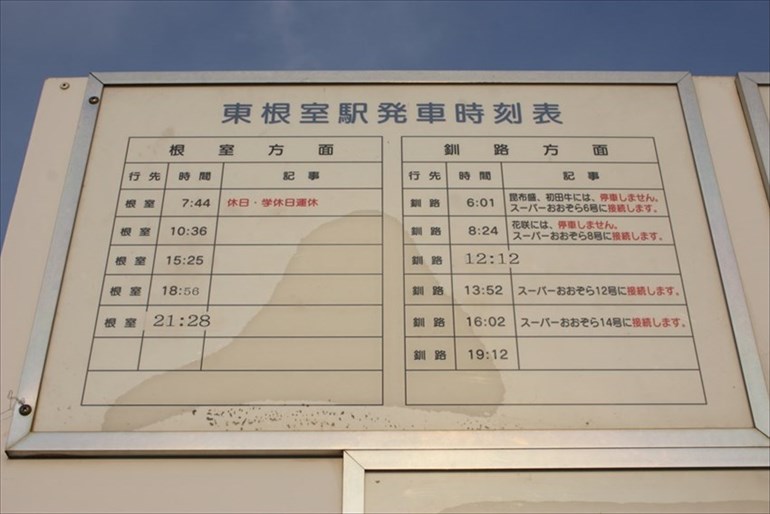 東根室駅発車時刻表
根室方面
行先 時間 記事
根室 7:44 休日・学休日運休
根室 10:36
根室 15:25
根室 18:56
根室 21:28
釧路方面
行先 時間 記事
釧路 6:01 昆布盛、初田牛には、停車しません。
スーパーおおぞら6号に接続します。
釧路 8:24 花咲には、停車しません。
スーパーおおぞら8号に接続します。
釧路 12:12
釧路 13:52 スーパーおおぞら12号に接続します。
釧路 16:02 スーパーおおぞら14号に接続します。
釧路 19:12